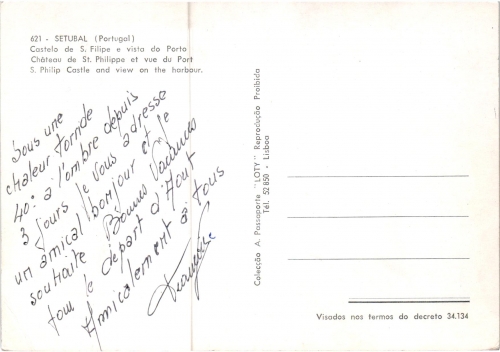 621 - SETUBAL (Portugal)
Castelo de S. Filipe e vista do Porto
Château de St. Philippe et vue du Port
S. Philip Castle and view on the harbour.
Sous une
chaleur torride
40° à l'ombre depuis
3 jours je vous adresse
un amical bonjour et je
souhaite Bonnes Vacances
pour le départ d'Aout
Amicalement à tous
Colecção A. Passaporte "LOTY" Reprodução Proibida
Tél. 52 850 - Lisboa
Visados nos termos do decreto 34.134